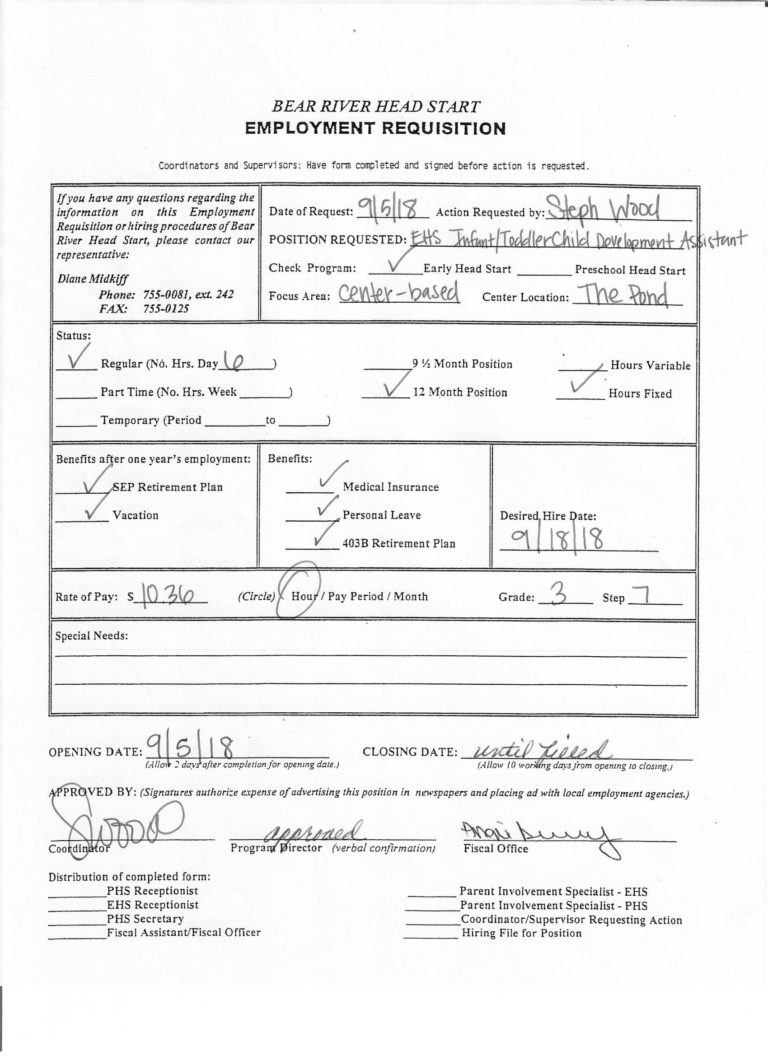 BEAR RIVER HEAD START
EMPLOYMENT REQUISITION
Coordinators and Supervisors: Have form completed and signed before action is requested.
If you have any questions regarding the
information on this Employment
Requisition or hiring procedures of Bear
River Head Start, please contact our
representative:
Diane Midkiff
Phone: 755-0081, ext. 242
FAX: 755-0125
Date of Request: 9/5/18 Action Requested by: Steph Wood
POSITION REQUESTED: EHS Infant/Toddler Child Development Assistant
Check Program: ✓ Early Head Start Preschool Head Start
Focus Area: center-based Center Location: The Pond
Status:
✓ Regular (No. Hrs. Day 6 ) 9 ½ Month Position Hours Variable
Part Time (No. Hrs. Week ) ✓ 12 Month Position ✓ Hours Fixed
Temporary (Period to )
Benefits after one year's employment:
✓ SEP Retirement Plan
✓ Vacation
Benefits:
✓ Medical Insurance
✓ Personal Leave
✓ 403B Retirement Plan
Desired Hire Date:
9/18/18
Rate of Pay: $ 10.36 (Circle) Hour / Pay Period / Month Grade: 3 Step 7
Special Needs:
OPENING DATE: 9/5/18 CLOSING DATE: until filled
(Allow 2 days after completion for opening date.) (Allow 10 working days from opening to closing.)
APPROVED BY: (Signatures authorize expense of advertising this position in newspapers and placing ad with local employment agencies.)
SWood approved
Coordinator Program Director (verbal confirmation) Fiscal Office
Distribution of completed form:
PHS Receptionist Parent Involvement Specialist - EHS
EHS Receptionist Parent Involvement Specialist - PHS
PHS Secretary Coordinator/Supervisor Requesting Action
Fiscal Assistant/Fiscal Officer Hiring File for Position